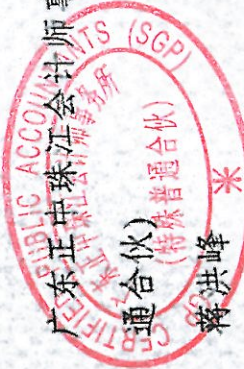 广东正中珠江会计师事
通合伙)
蒋洪峰
CERTIFIED PUBLIC ACCOUNTANTS (SGP)
(特殊普通合伙)